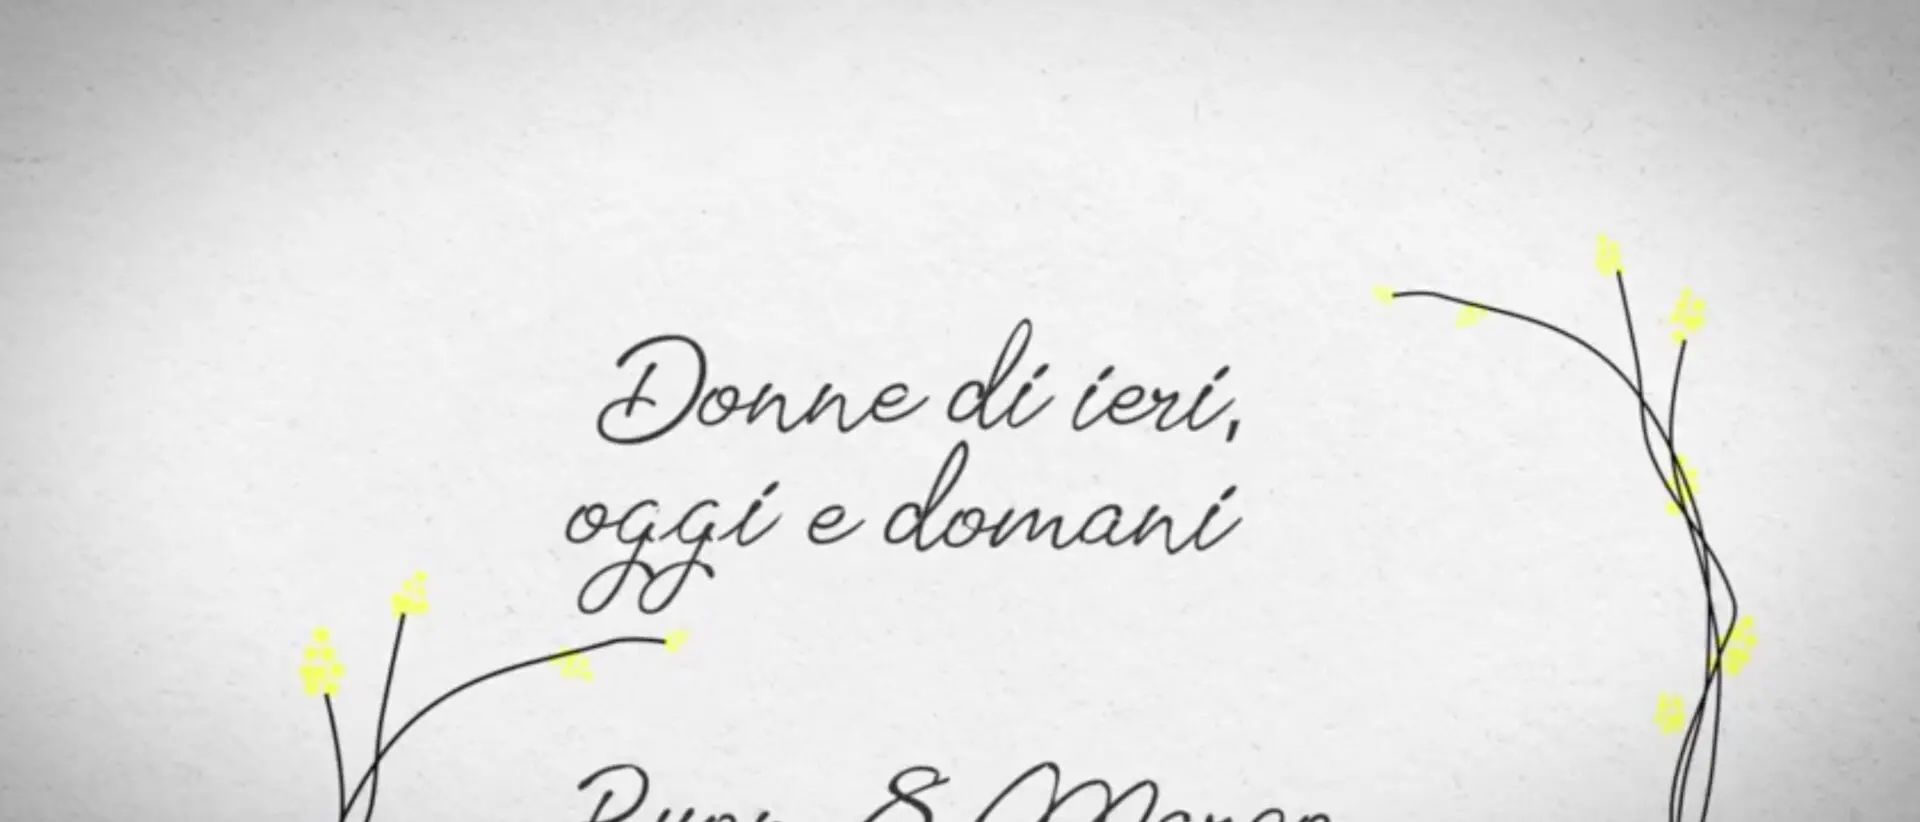 Donne di ieri,
oggi e domani
Buon 8 Marzo